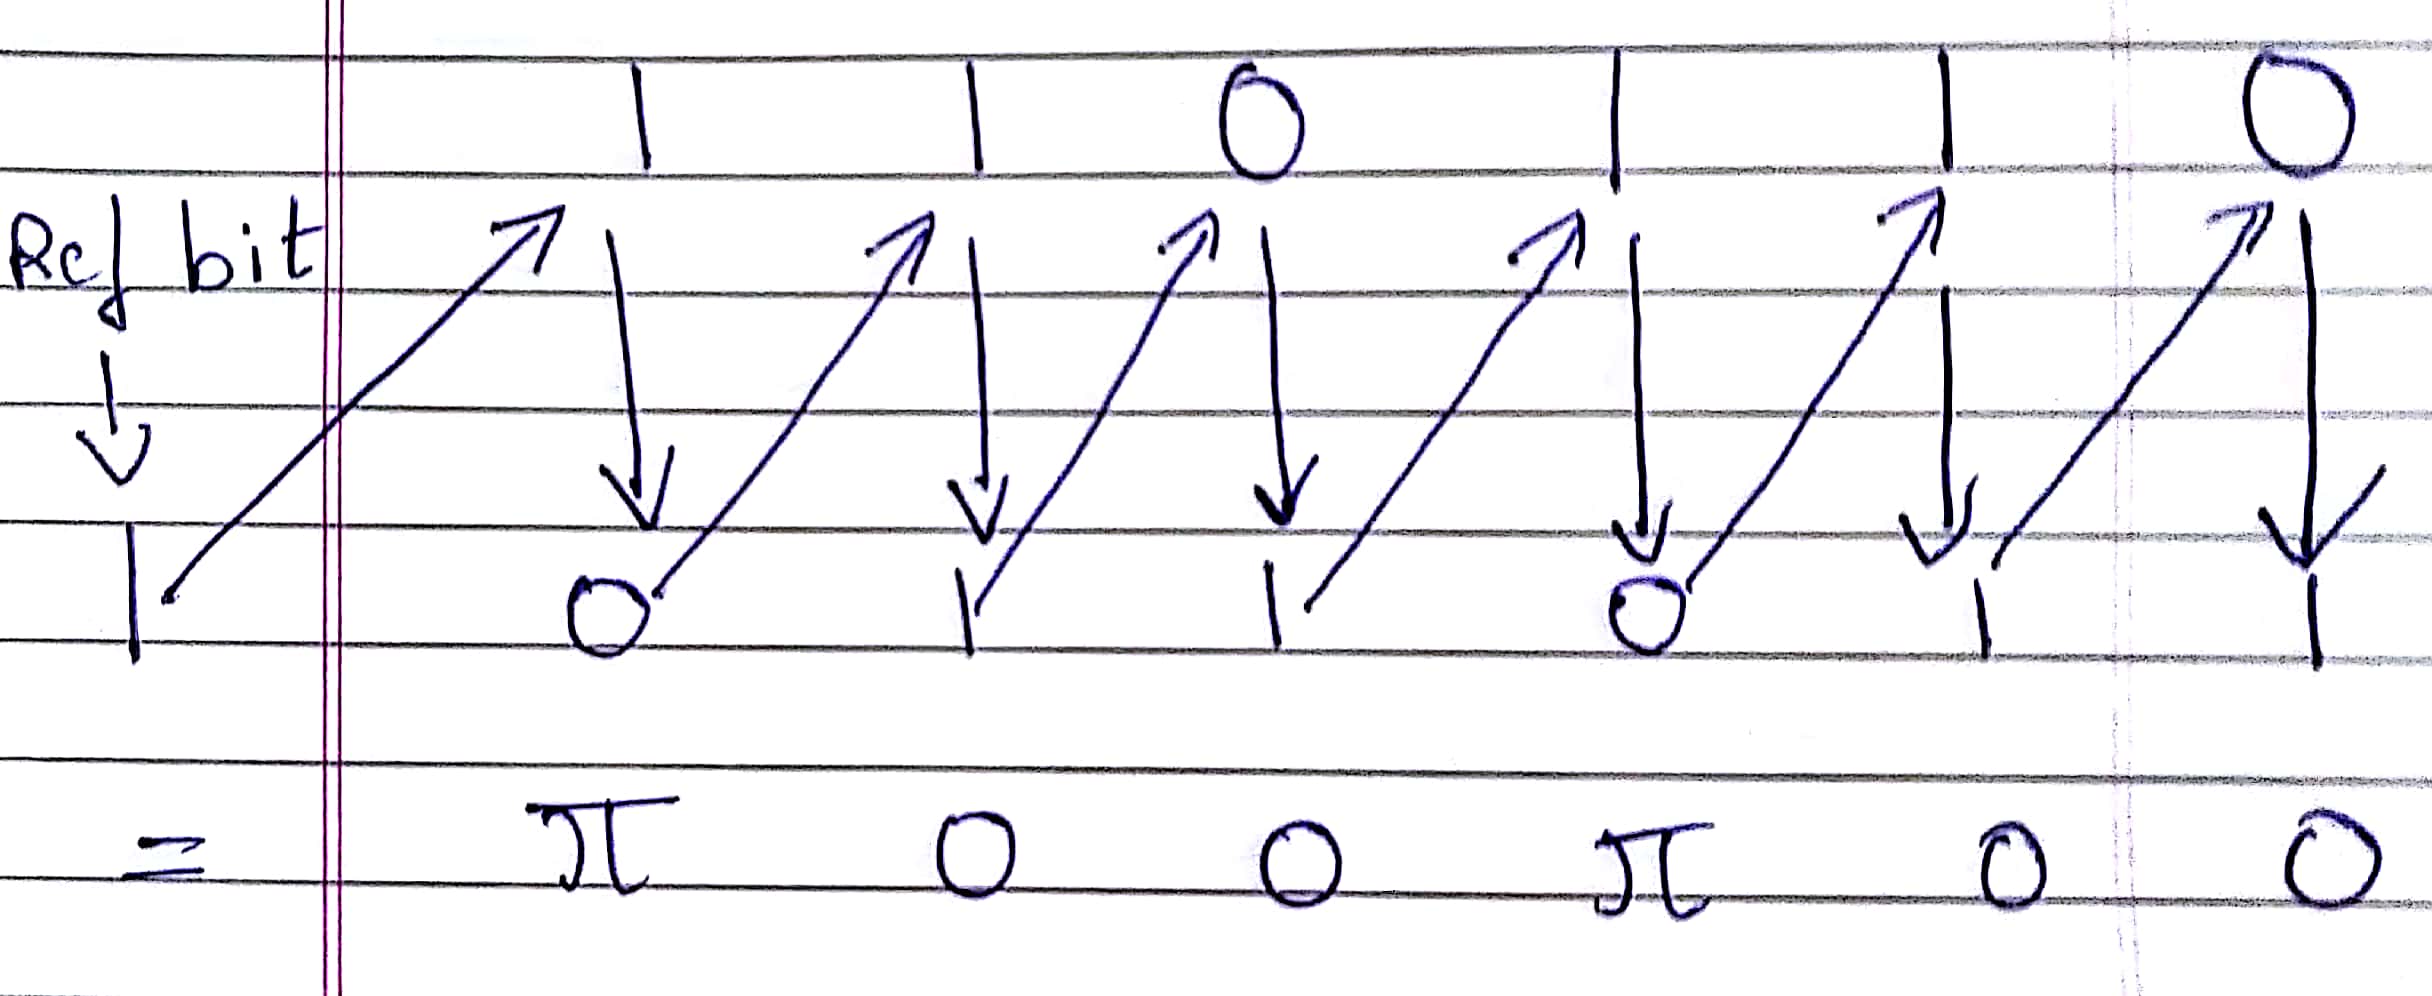 1 1 0 1 1 0
Ref bit
1 0 1 1 0 1 1
= π 0 0 π 0 0